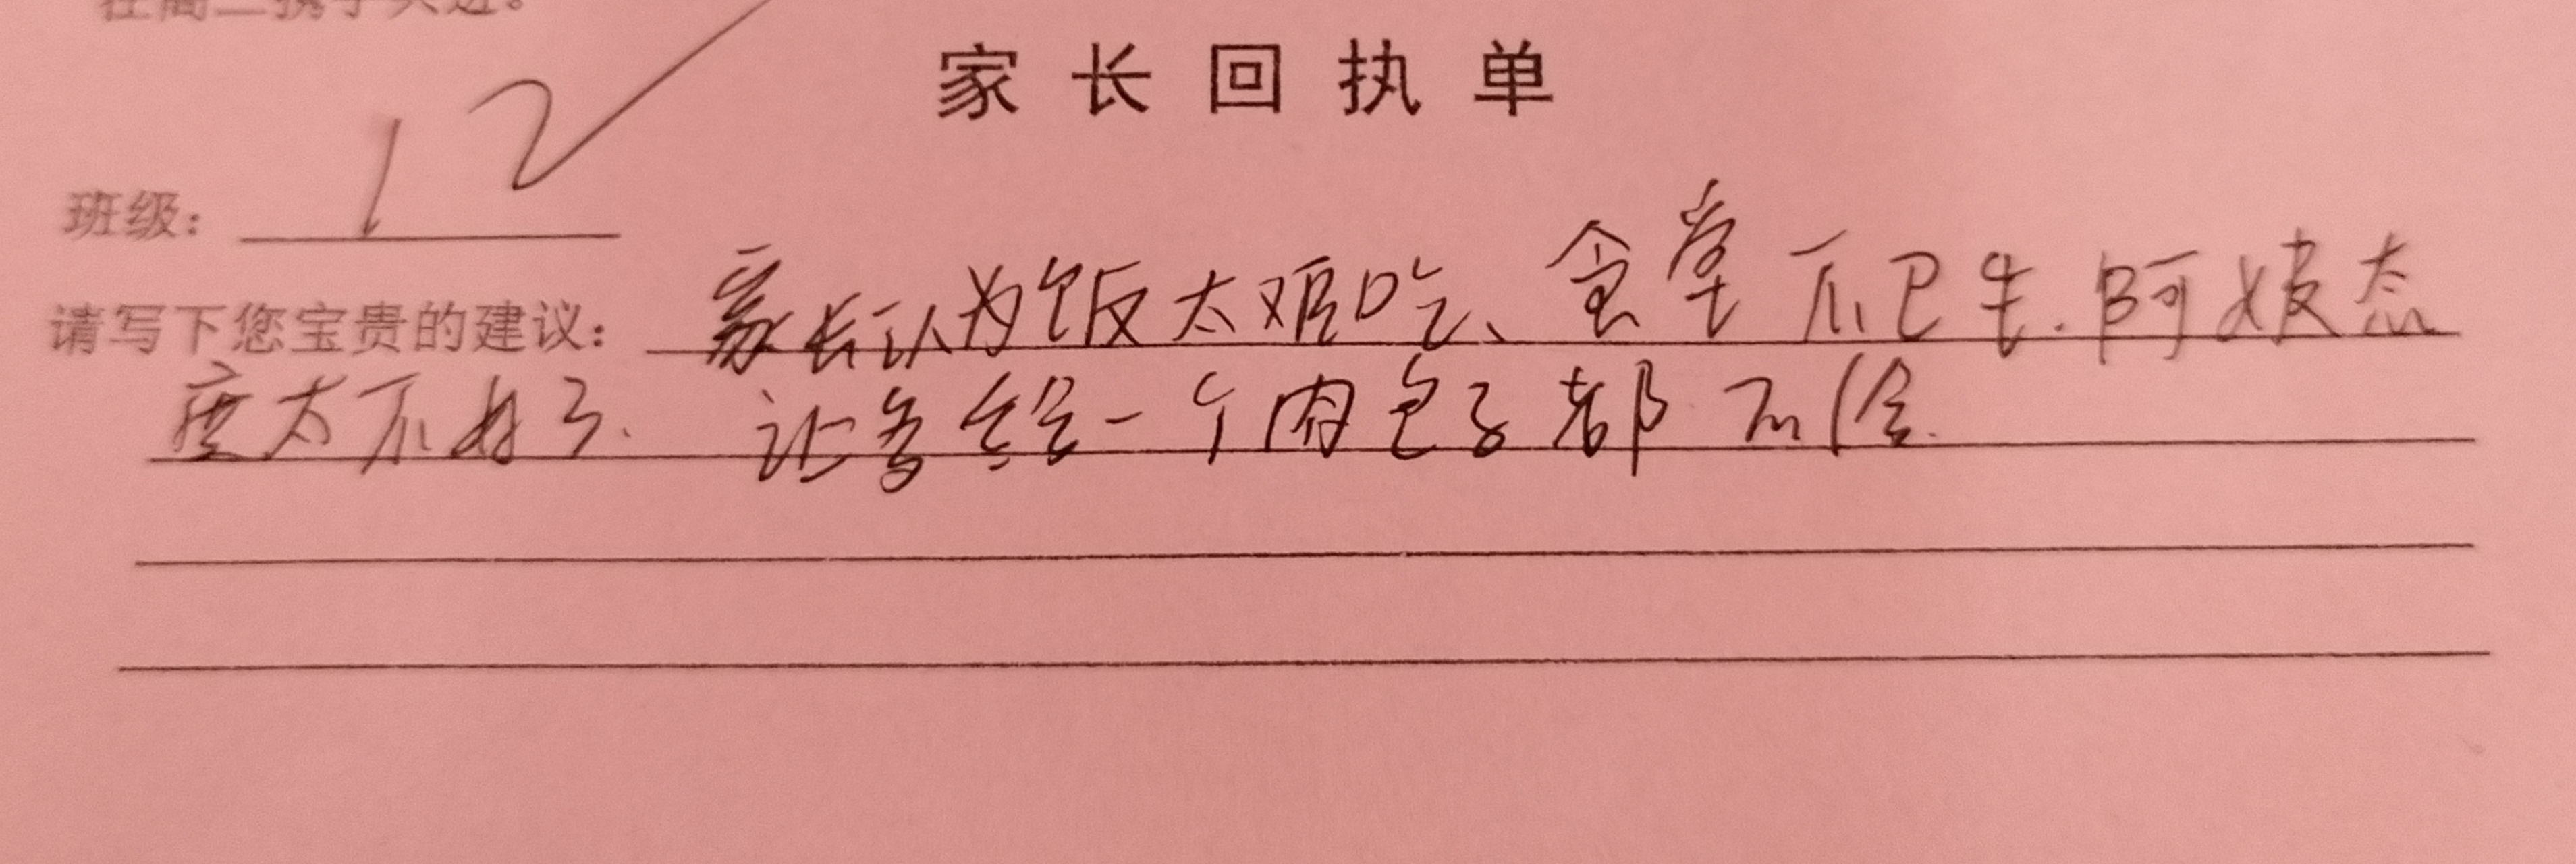 在高二携手共进。
家长回执单
班级: 12
请写下您宝贵的建议: 家长认为饭太难吃、食堂不卫生.阿姨态
度太不好了. 让多给一个肉包子都不给.